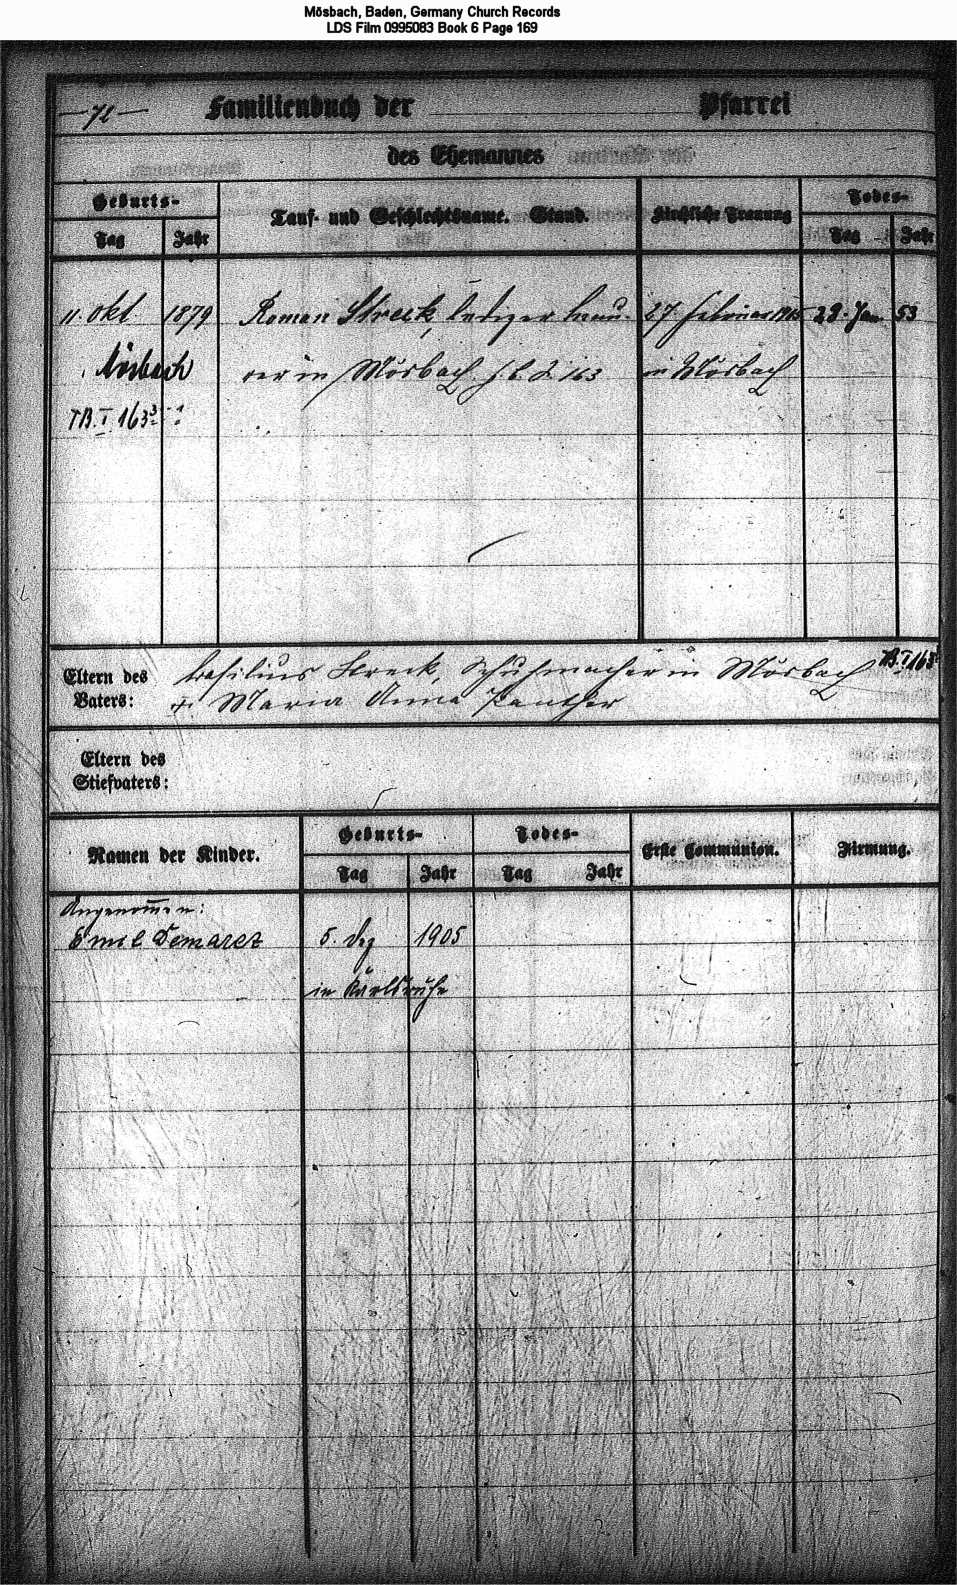 Mösbach, Baden, Germany Church Records
LDS Film 0995083 Book 6 Page 169
— 72 —
Familienbuch der Pfarrei
des Ehemannes
Geburts-
Tag Jahr
Tauf- und Geschlechtsname. Stand.
Kirchliche Trauung
Todes-
Tag Jahr
11. Okt 1879 Roman Streck, lediger Mau- 27. Februar 28. Jan. 53
Mösbach rer in Mösbach 163 in Mösbach
TB. I 163
Eltern des Vaters:
Basilius Streck, Schuhmacher in Mösbach TB. I 163
u. Maria Anna Panther
Eltern des
Stiefvaters:
Namen der Kinder.
Geburts-
Tag Jahr
Todes-
Tag Jahr
Erste Communion.
Firmung.
Angenommen:
Emil Demarez 5. Dez 1905
in Karlsruhe